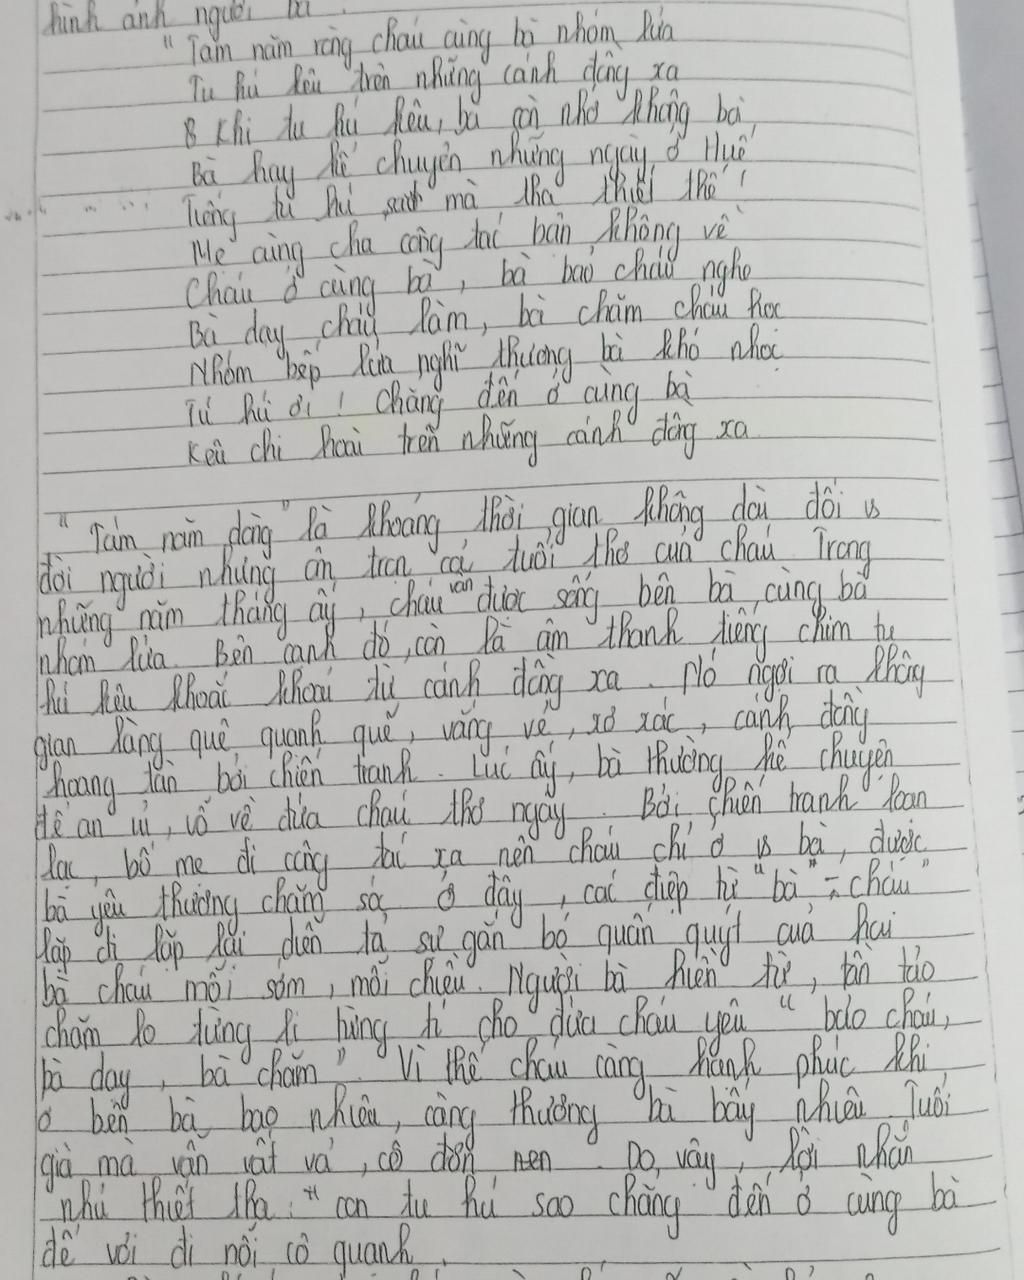 hình ảnh người bà.
"Tám năm ròng cháu cùng bà nhóm lửa
Tu hú kêu trên những cánh đồng xa
Khi tu hú kêu, bà còn nhớ không bà
Bà hay kể chuyện những ngày ở Huế
Tiếng tú hú sao mà tha thiết thế!
Mẹ cùng cha công tác bận không về
Cháu ở cùng bà, bà bảo cháu nghe
Bà dạy cháu làm, bà chăm cháu học
Nhóm bếp lửa nghĩ thương bà khó nhọc
Tú hú ơi! Chẳng đến ở cùng bà
Kêu chi hoài trên những cánh đồng xa
"Tám năm dòng" là khoảng thời gian không dài đối vs
đời người nhưng ôn trọn cả tuổi thơ của cháu. Trong
những năm tháng ấy, cháu vẫn được sống bên bà, cùng bà
nhóm lửa. Bên cạnh đó, còn là âm thanh tiếng chim tu
hú kêu khoắc khoải từ cánh đồng xa. Nó ngợi ra không
gian làng quê quạnh quẽ, vắng vẻ, xơ xác, cánh đồng
hoang tàn bởi chiến tranh. Lúc ấy, bà thường kể chuyện
để an ủi, vỗ về đứa cháu thơ ngây. Bởi chiến tranh loạn
lạc, bố mẹ đi công tác xa nên cháu chỉ ở vs bà, được
bà yêu thương chăm sóc. Ở đây, các điệp từ "bà" - "cháu"
lặp đi lặp lại diễn tả sự gắn bó quấn quýt của hai
bà cháu mỗi sớm, mỗi chiều. Người bà hiền từ, tần tảo
chăm lo từng li từng tí cho đứa cháu yêu "bảo cháu,
bà dạy, bà chăm". Vì thế cháu càng hạnh phúc khi
ở bên bà bao nhiêu, càng thương bà bấy nhiêu. Tuổi
già mà vẫn vất vả, cô đơn nên. Do vậy, lời nhắn
nhủ thiết tha: "con tu hú sao chẳng đến ở cùng bà
để vơi đi nỗi cô quạnh.